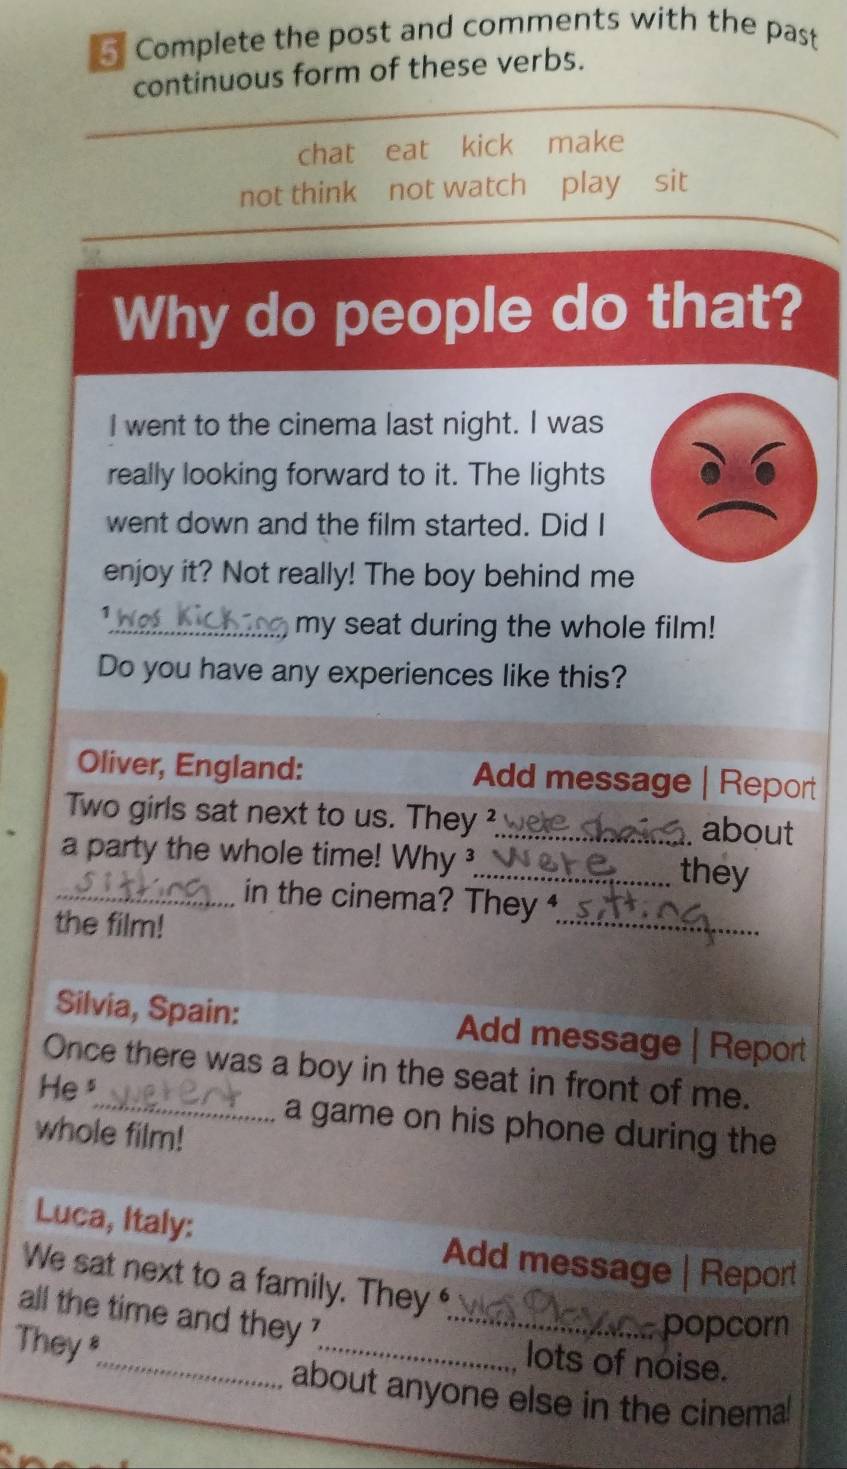 5 Complete the post and comments with the past
continuous form of these verbs.
chat eat kick make
not think not watch play sit
Why do people do that?
I went to the cinema last night. I was
really looking forward to it. The lights
went down and the film started. Did I
enjoy it? Not really! The boy behind me
1 was kicking my seat during the whole film!
Do you have any experiences like this?
Oliver, England: Add message | Report
Two girls sat next to us. They 2 were about
a party the whole time! Why 3 were they
sitting in the cinema? They 4 sitting
the film!
Silvia, Spain: Add message | Report
Once there was a boy in the seat in front of me.
He 5 a game on his phone during the
whole film!
Luca, Italy: Add message | Report
We sat next to a family. They 6 was Playing popcorn
all the time and they 7 lots of noise.
They 8 about anyone else in the cinema!